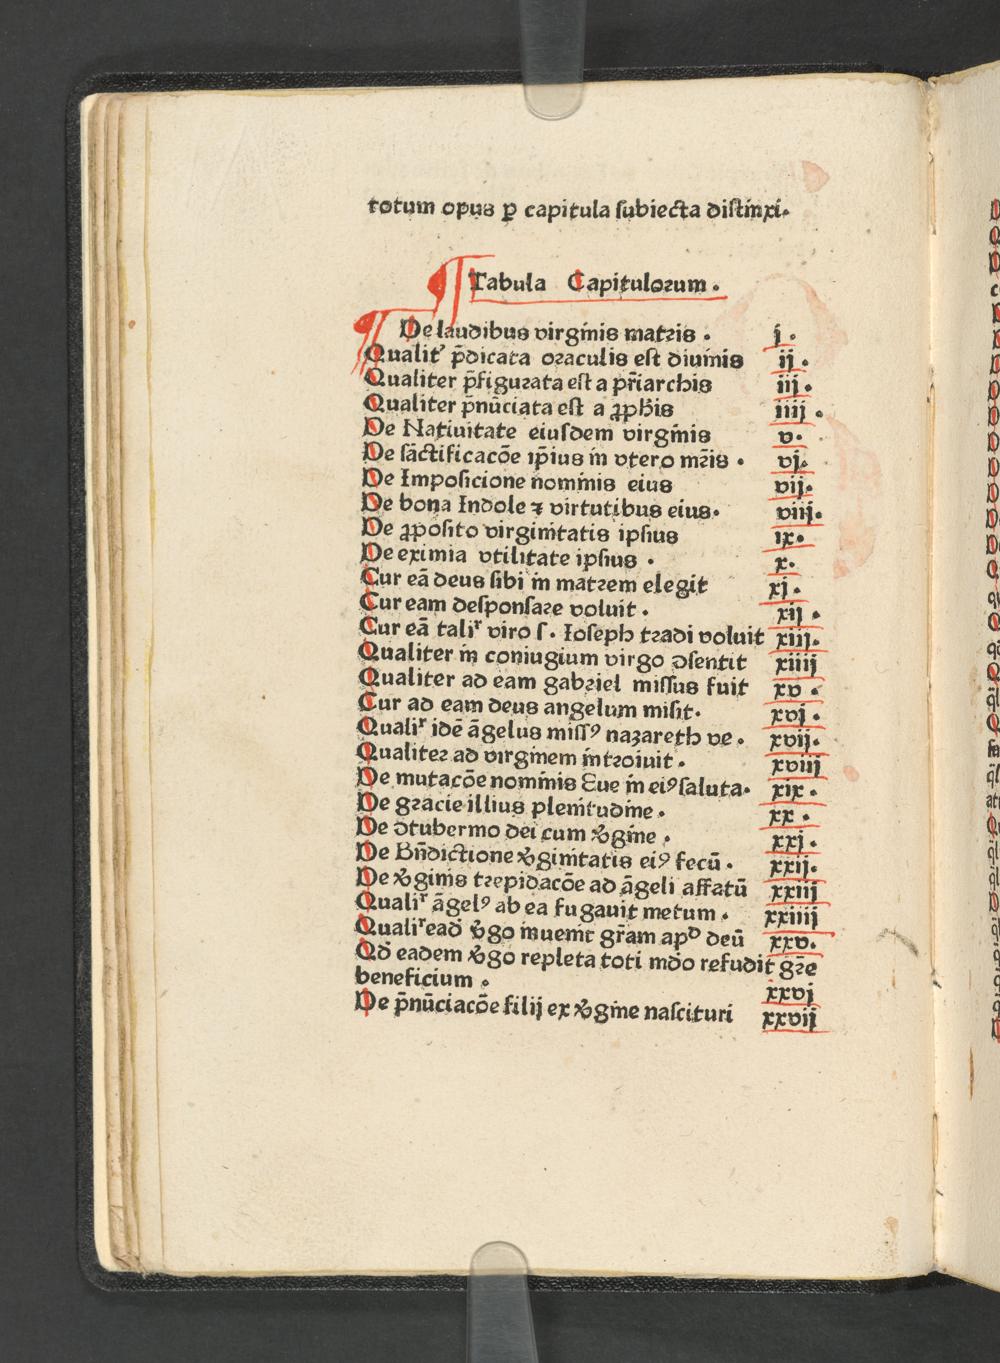 totum opus ꝑ capitula ſubiecta diſtinxi.
Tabula Capitulorum.
De laudibus virginis matris . j.
Qualit᷒ p̄dicata oraculis eſt diuinis ij.
Qualiter p̄figurata eſt a pr̄iarchis iij.
Qualiter p̄nūciata eſt a ꝓph̄is iiij.
De Natiuitate eiuſdem virginis v.
De ſāctificacōe ip̄ius in vtero mr̄is . vj.
De Impoſicione nominis eius vij.
De bona Indole ⁊ virtutibus eius. viij.
De ꝓpoſito virginitatis ipſius ix.
De eximia vtilitate ipſius . x.
Cur eā deus ſibi in matrem elegit xj.
Cur eam deſponſare voluit . xij.
Cur eā taliʳ viro ſ. Ioſeph tradi voluit xiij.
Qualiter in coniugium virgo ↄſentit xiiij
Qualiter ad eam gabriel miſſus fuit xv.
Cur ad eam deus angelum miſit. xvj.
Qualiʳ idē āgelus miſſꝰ nazareth ve . xvij.
Qualiter ad virginem introiuit . xviij
De mutacōe nominis Eue in eiꝰ ſaluta. xix.
De gracie illius plenitudine . xx.
De ↄtubernio dei cum v̾gine . xxj.
De Bn̄dictione v̾ginitatis eiꝰ fecū . xxij.
De v̾ginis trepidacōe ad āgeli affatū xxiij
Qualiʳ āgelꝰ ab ea fugauit metum . xxiiij
Qualiʳ ead̄ v̾go inuenit gr̄am apᵈ deū xxv.
Qd̄ eadem v̾go repleta toti mdo refudit gr̄e
beneficium . xxvj
De p̄nūciacōe filij ex v̾gine naſcituri xxvij